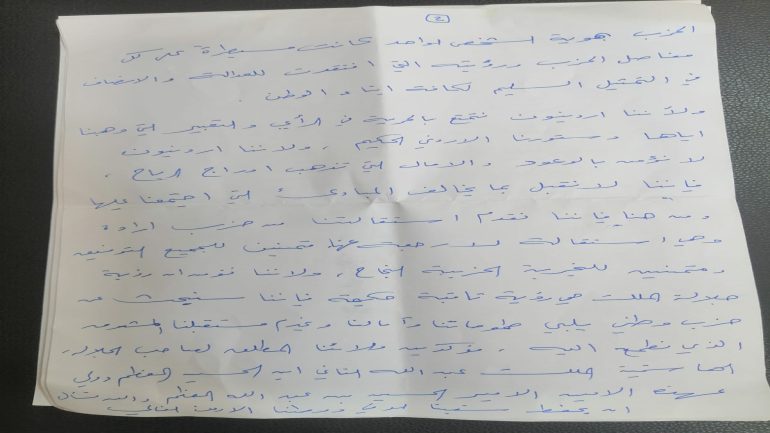 2
الحزب بهوية الشخص الواحد كانت مسيطرة على كل
مفاصل الحزب ورؤيته التي افتقدت للعدالة والانصاف
في التمثيل السليم لكافة ابناء الوطن .
ولأننا اردنيون نتمتع بالحرية في الرأي والتعبير التي وهبنا
اياها دستورنا الاردني الحكيم ، ولاننا اردنيون
لا نؤمن بالوعود والآمال التي تذهب ادراج الرياح ،
فإننا لا نقبل بما يخالف المبادئ التي اجتمعنا عليها
ومن هنا فإننا نقدم استقالتنا من حزب ارادة
وهي استقالة لا رجعة عنها متمنين للجميع التوفيق
ومتمنين للتجربة الحزبية النجاح ، ولاننا نؤمن ان رؤية
جلالة الملك هي رؤية ثاقبة حكيمة فإننا سنبحث عن
حزب وطني يلبي طموحاتنا وآمالنا ويخدم مستقبلنا المشرق
الذي نطمح اليه ، مؤكدين ولائنا المطلق لصاحب الجلالة
الهاشمية الملك عبد الله الثاني ابن الحسين المعظم وولي
عهده الامين الامير الحسين بن عبد الله المعظم والله نسأل
ان يحفظ